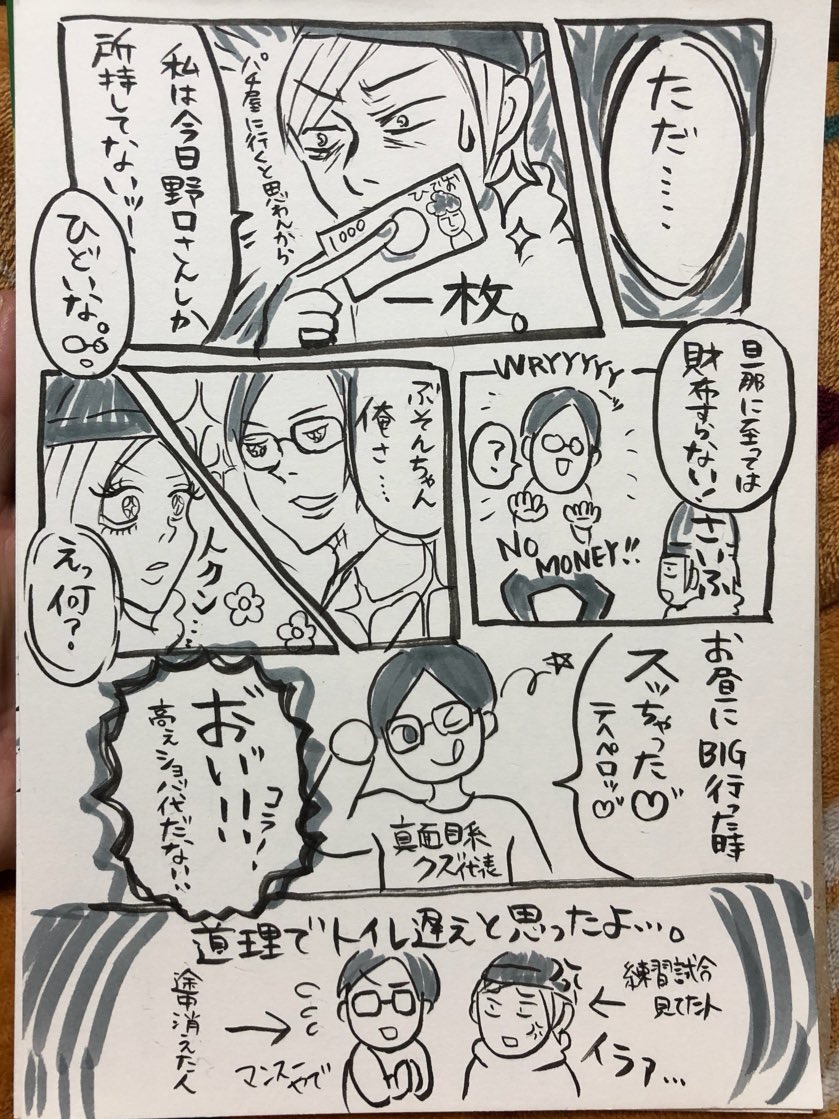 ただ……
パチ屋に行くと思わんから
ひでお
1000
一枚。
私は今日野口さんしか
所持してないッ!
ひどいな。
旦那に至っては
財布すらない!
さいふ
WRYYYYY
?
NO
MONEY!!
ぶそんちゃん
俺さ…
トクン…
えっ何?
お昼にBIG行った時
スッちゃった♡
テヘペロッ♡
真面目系
クズ代表
コラ!
おいーい
高ぇショバ代だ、ない、
道理でトイレ遅えと思ったよ…。
練習試合
見てた人
イラァ…
途中消えた人
マンスーやで